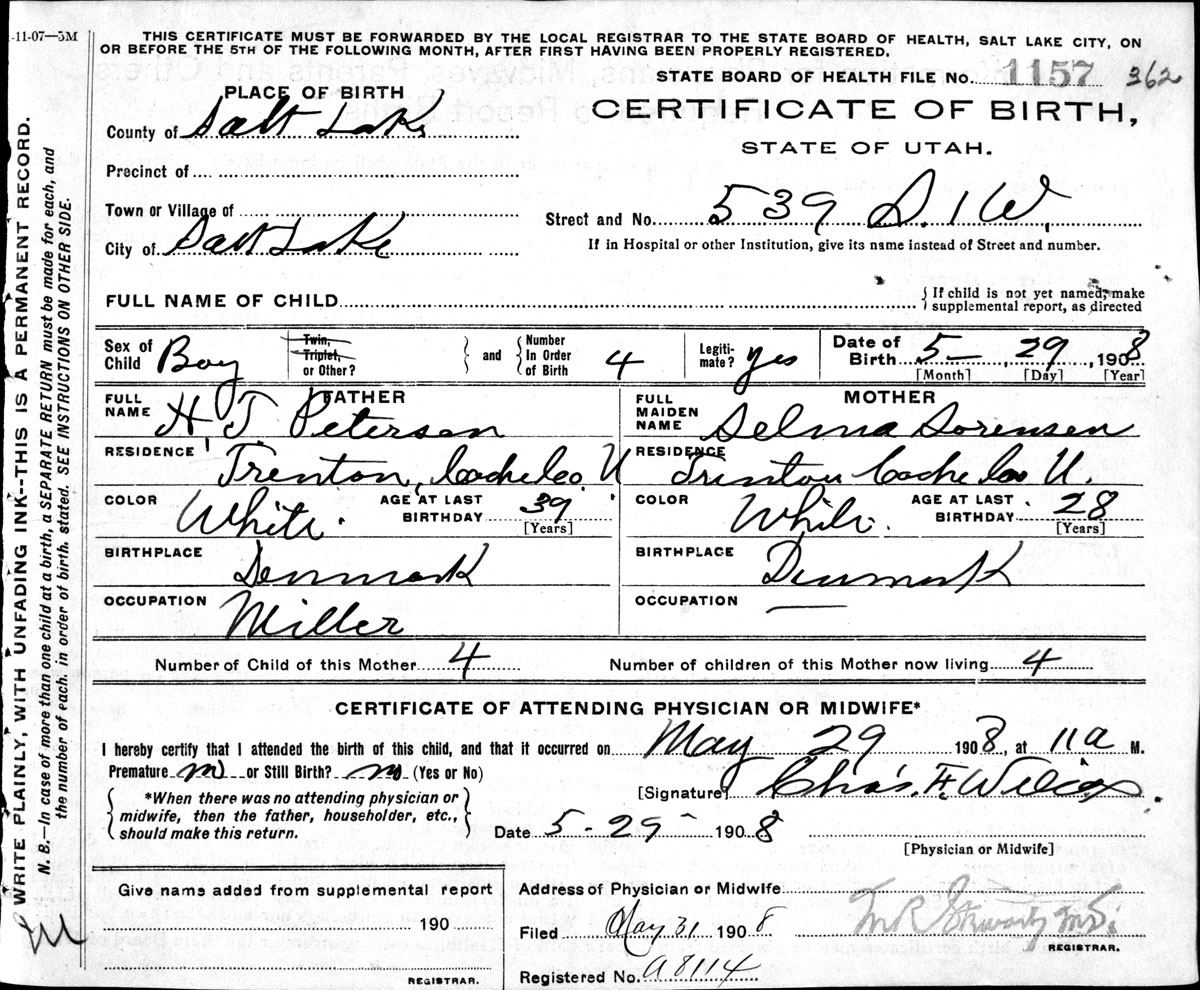 -11-07—3M
THIS CERTIFICATE MUST BE FORWARDED BY THE LOCAL REGISTRAR TO THE STATE BOARD OF HEALTH, SALT LAKE CITY, ON
OR BEFORE THE 5TH OF THE FOLLOWING MONTH, AFTER FIRST HAVING BEEN PROPERLY REGISTERED.
STATE BOARD OF HEALTH FILE No. 1157 362
PLACE OF BIRTH
CERTIFICATE OF BIRTH,
STATE OF UTAH.
County of Salt Lake
Precinct of
Town or Village of
Street and No. 539 S. 1 W.
City of Salt Lake
If in Hospital or other Institution, give its name instead of Street and number.
FULL NAME OF CHILD
{ If child is not yet named, make
supplemental report, as directed
Sex of Child Boy
Twin, Triplet, or Other?
and
Number In Order of Birth 4
Legiti-mate? Yes
Date of Birth 5 — , 29 , 1908
[Month] [Day] [Year]
FATHER
FULL NAME H. J. Petersen
MOTHER
FULL MAIDEN NAME Selma Sorensen
RESIDENCE Trenton, Cache Co. U
RESIDENCE Trenton Cache Co U.
COLOR White.
AGE AT LAST BIRTHDAY 39
[Years]
COLOR White.
AGE AT LAST BIRTHDAY 28
[Years]
BIRTHPLACE Denmark
BIRTHPLACE Denmark
OCCUPATION Miller
OCCUPATION —
Number of Child of this Mother 4
Number of children of this Mother now living 4
CERTIFICATE OF ATTENDING PHYSICIAN OR MIDWIFE*
I hereby certify that I attended the birth of this child, and that it occurred on May 29 1908, at 11 a M.
Premature no or Still Birth? no (Yes or No)
[Signature] Chas. F. Wilcox
{ *When there was no attending physician or
midwife, then the father, householder, etc.,
should make this return. }
Date 5-29- 1908
[Physician or Midwife]
Give name added from supplemental report
190
REGISTRAR.
Address of Physician or Midwife
Filed May 31 1908
REGISTRAR.
Registered No. A8114
WRITE PLAINLY, WITH UNFADING INK--THIS IS A PERMANENT RECORD.
N. B.—In case of more than one child at a birth, a SEPARATE RETURN must be made for each, and
the number of each, in order of birth, stated. SEE INSTRUCTIONS ON OTHER SIDE.